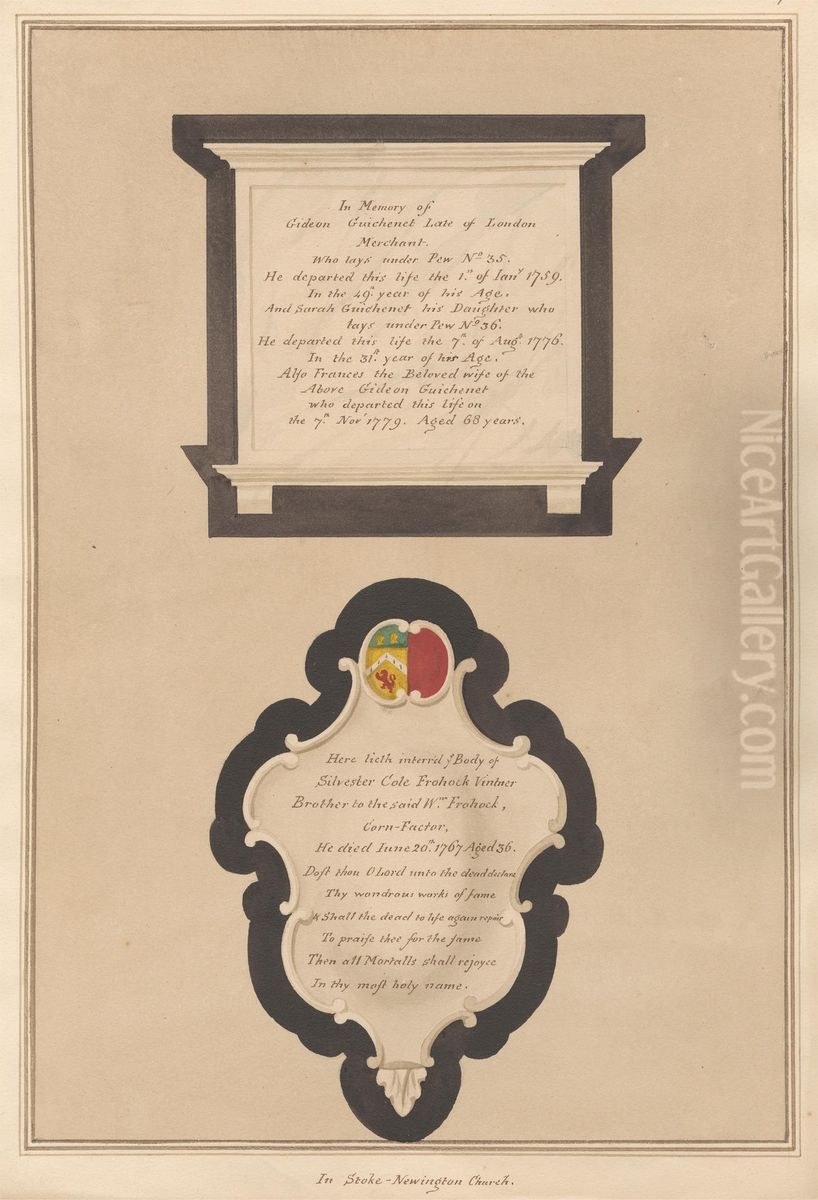 In Memory of
Gideon Guichenet Late of London
Merchant.
Who lays under Pew Nº 35.
He departed this life the 1.st of Ianʸ 1759.
In the 49.th year of his Age.
And Sarah Guichenet his Daughter who
lays under Pew Nº 36.
He departed this life the 7.th of Augst 1776.
In the 31.st year of his Age.
Alſo Frances the Beloved wife of the
Above Gideon Guichenet
who departed this life on
the 7.th Novr 1779. Aged 68 years.
Here lieth interr'd yͤ Body of
Silvester Cole Frohock Vintner
Brother to the said Wm. Frohock,
Corn-Factor,
He died Iune 20th. 1767 Aged 36.
Doſt thou O Lord unto the dead declare
Thy wondrous works of fame
& Shall the dead to life again repair
To praiſe thee for the ſame
Then all Mortalls shall rejoyce
In thy moſt holy name.
In Stoke-Newington Church.
NiceArtGallery.com